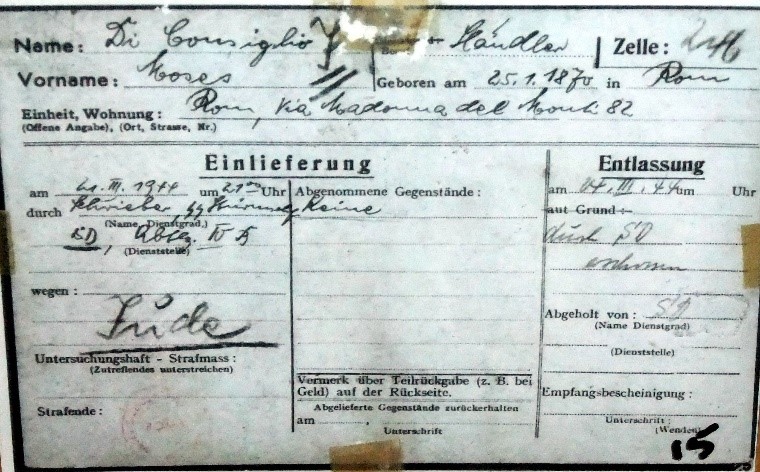 Name: Di Consiglio Händler Zelle:
Vorname: Moses Geboren am 25.1.1870 in Rom
Einheit, Wohnung: Rom, Via Madonna del Monti 82
(Offene Angabe), (Ort, Strasse, Nr.)
Einlieferung Entlassung
am 21. III. 1944 um 21 Uhr Abgenommene Gegenstände: am 24. III. 44 um Uhr
durch Keine auf Grund:
(Name, Dienstgrad) durch SD
SD, Abtlg. IV
(Dienststelle) erschossen
wegen:
Jude
Abgeholt von: SD
(Name Dienstgrad)
(Dienststelle)
Untersuchungshaft - Strafmass:
(Zutreffendes unterstreichen)
Vermerk über Teilrückgabe (z. B. bei
Geld) auf der Rückseite.
Empfangsbescheinigung:
Strafende: Abgelieferte Gegenstände zurückerhalten
am , Unterschrift:
Unterschrift (Wenden)
15